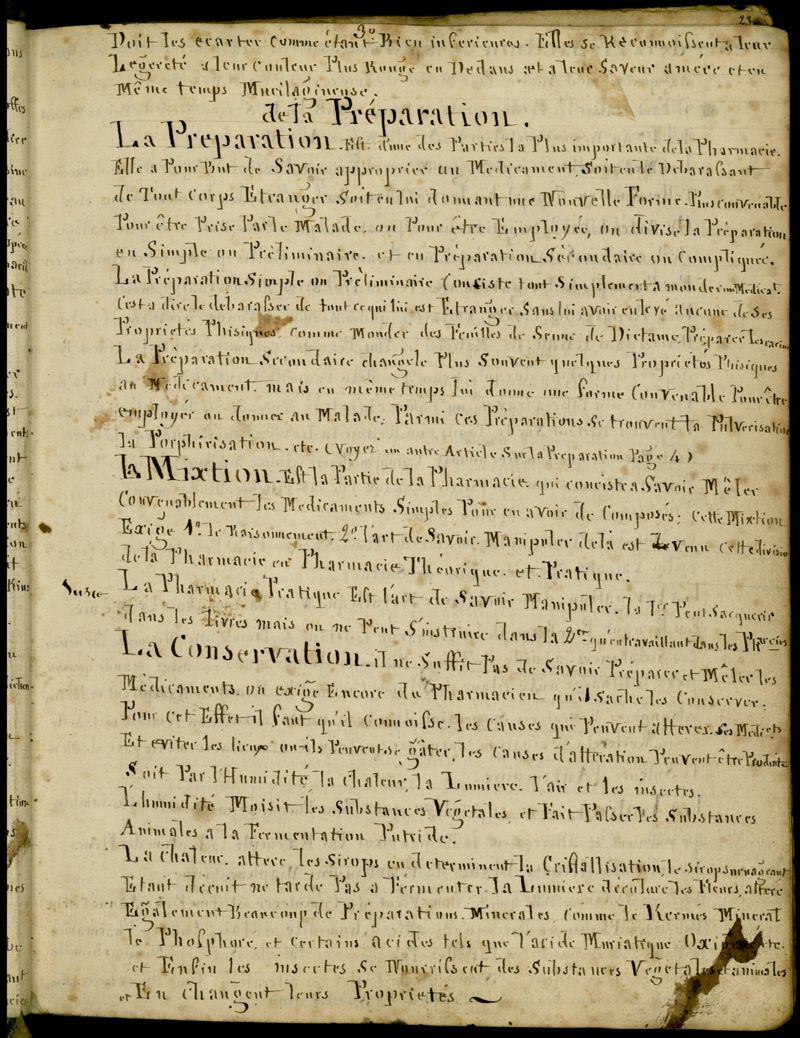 23
3º
Doit les ecarter comme étant Bien inferieures. Elles se Reconnoissent a leur
Legereté a leur Couleur Plus Rouge en Dedans et a leur Saveur amère et en
Même temps Mucilagineuse.
de la Préparation.
La Préparation. Est d'une des Parties la Plus importante de la Pharmacie.
Elle a Pour But de Savoir approprier un Medicament, Soit en le Debarassant
de Tout Corps Etranger Soit en lui donnant une Nouvelle Forme. Plus convenable
Pour être Prise Par le Malade, ou Pour être Employée, on divise la Préparation
en Simple ou Préliminaire. et en Préparation Sécondaire ou Compliquée.
La Préparation Simple ou Préliminaire Consiste tout Simplement a monder un Medicat.
C'est a dire le debarasser de tout ce qui lui est Etranger Sans lui avoir enlevé aucune de Ses
Proprietés Phisiques, comme Monder des Feuilles de Senne de Dictame, Préparer les
La Préparation Secondaire change le Plus Souvent quelques Proprietés Phisiques
au Médicament. mais en même temps lui donne une forme Convenable Pour être
employer ou donner au Malade. Parmi ces Préparations se trouvent la Pulverisation
la Porphirisation. etc. (Voyez un autre Article Sur la Preparation Page 4)
la Mixtion. Est la Partie de la Pharmacie. qui concistea Savoir Mêler
Convenablement les Medicaments Simples Pour en avoir de Composés; Cette Mixtion
Exige 1º. le Raisonnement. 2º. l'art de Savoir. Manipuler de la est Venu Cette division
de la Pharmacie en Pharmacie Théorique. et Pratique.
La Pharmacie Pratique Est l'art de Savoir Manipuler. la 1ere Peut Sacquerir
dans les Livres mais on ne Peut S'instruire dans la 2me qu'en travaillant dans les Pharcies
La Conservation. il ne Suffit Pas de Savoir Préparer et Mêler les
Médicaments, on exige Encore du Pharmacien qu'il Sache les Conserver.
Pour Cet Effet il faut qu'il Connoisse. les Causes qui Peuvent alterer. les Medicts
Et eviter les lieux ou ils Peuvent se gâter, les Causes d'alteration Peuvent être Produite
Soit Par l'Humidité, la chaleur, la Lumiere. l'air et les insectes.
L'humidité Moisit les Substances Végetales, et Fait Passer les Substances
Animales a la Fermentation Putride.
La chaleur. altere, les Sirops en determinent la Cristallisation, le Sirop
Etant decuit ne tarde Pas a Fermenter. la Lumiere décolore les Fleurs, altere
Egalement Beaucoup de Préparations Minerales, Comme le Kermès Mineral
le Phosphore, et Certains acides tels que l'acide Muriatique
et Enfin les insectes Se Nourrissent des Substances Vegetales et animales
et En changent leurs Proprietés